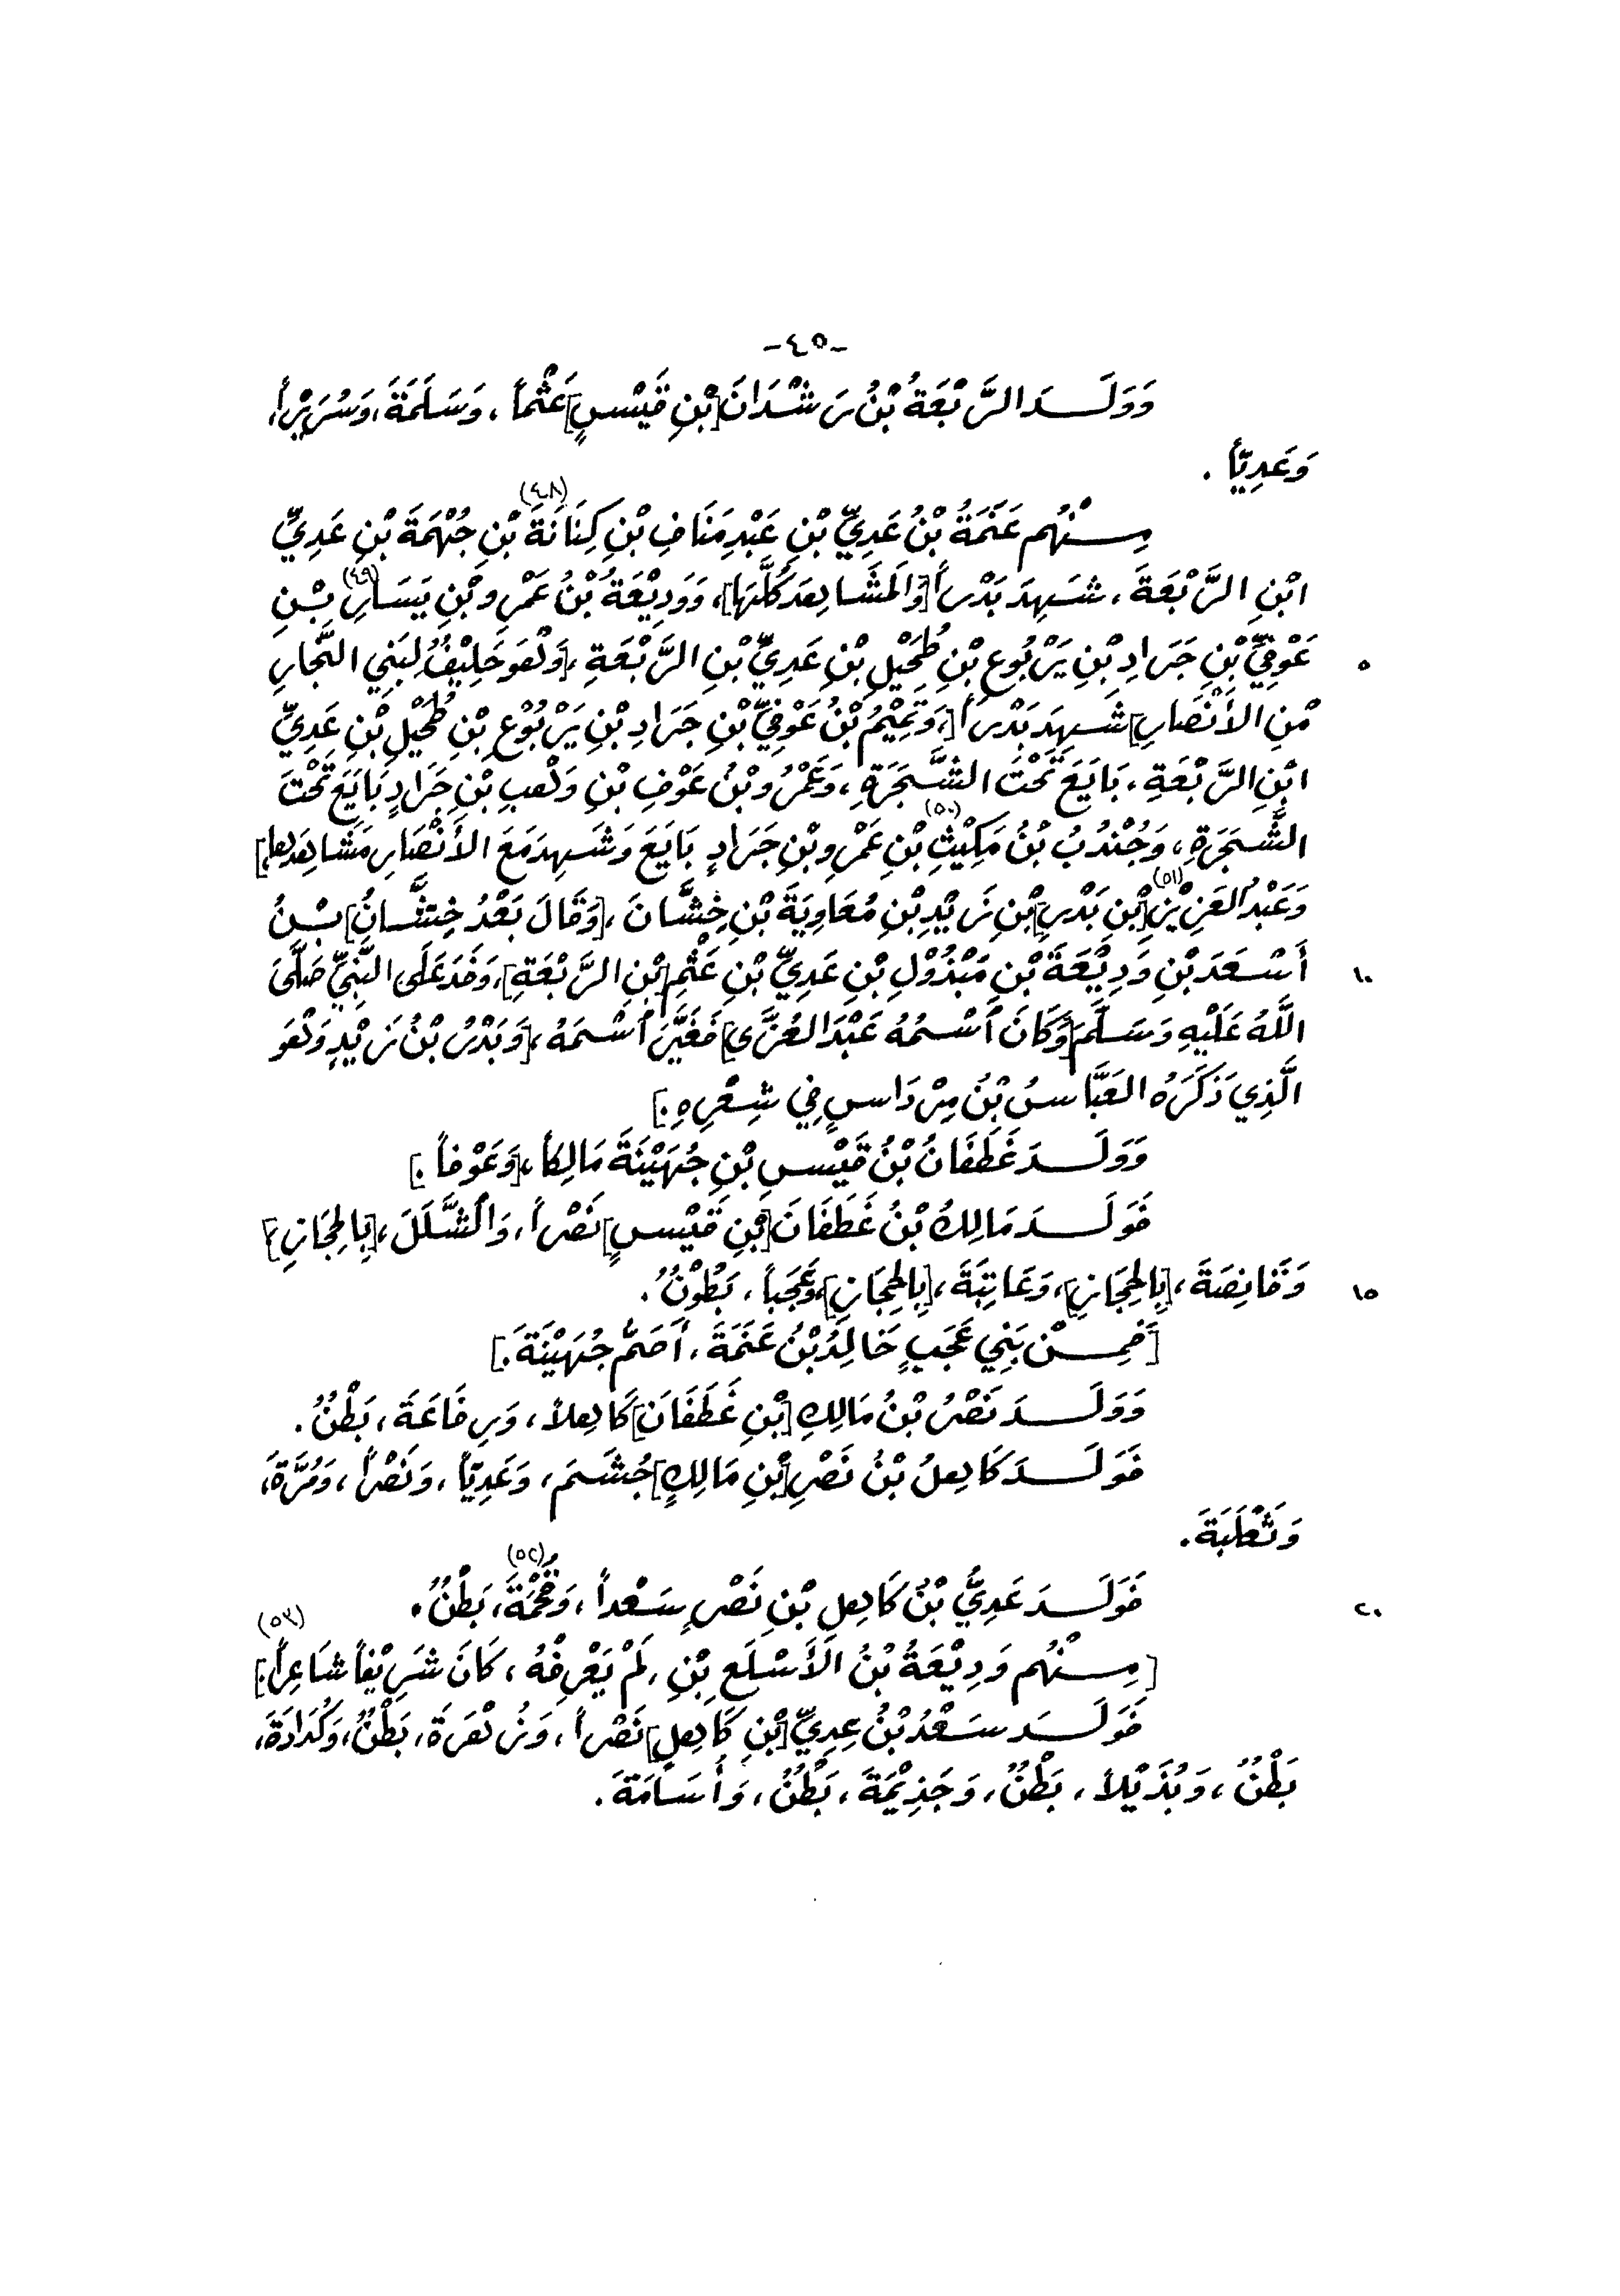 -٤٥-
وَوَلَــدَ الرَّبْعَةُ بْنُ رَشْدَانَ [بْنِ قَيْسٍ] عَثْماً، وَسَلَمَةَ، وَسُرَيْراً،
وَعَدِيّاً.
مِــنْهُم عَنَمَةُ بْنُ عَدِيِّ بْنِ عَبْدِ مَنَافِ بْنِ كِنَانَةَ (٤٨) بْنِ جُهْمَةَ بْنِ عَدِيِّ
ابْنِ الرَّبْعَةَ، شَهِدَ بَدْراً [وَالمَشَاهِدَ كُلَّهَا]، وَوَدِيْعَةُ بْنُ عَمْرِو بْنِ يَسَارِ (٤٩) بْــنِ
٥ عَوْفِيِّ بْنِ جَرَادِ بْنِ يَرْبُوعِ بْنِ طُحَيْلِ بْنِ عَدِيِّ بْنِ الرَّبْعَةِ، [وَهُوَ حَلِيْفٌ لِبَنِي النَّجَّارِ
مْنِ الأَنْصَارِ] شَهِدَ بَدْراً [، وَتَمِيْمُ بْنُ عَوْفِيِّ بْنِ جَرَادِ بْنِ يَرْبُوْعِ بْنِ طُحَيْلِ بْنِ عَدِيِّ
ابْنِ الرَّبْعَةِ، بَايَعَ تَحْتَ الشَّجَرَةِ، وَعَمْرُو بْنُ عَوْفِ بْنِ وَهْبِ بْنِ جَرَادٍ بَايَعَ تَحْتَ
الشَّجَرَةِ، وَجُنْدُبُ بْنُ مَكِيْثِ (٥٠) بْنِ عَمْرِو بْنِ جَرَادٍ بَايَعَ وَشَهِدَ مَعَ الأَنْصَارِ مَشَاهِدَهَا.]
وَعَبْدُ العَزِيْزِ (٥١) [بْنِ بَدْرِ] بْنِ زَيْدِ بْنِ مُعَاوِيَةَ بْنِ خِشَّانَ، [وَقَالَ بَعْدُ خِشَّانُ] بْــنُ
١٠ أَسْعَدَ بْنِ وَدِيْعَةَ بْنِ مَبْذُوْلِ بْنِ عَدِيِّ بْنِ عَثْمِ [بْنِ الرَّبْعَةِ]، وَفَدَ عَلَى النَّبِيِّ صَلَّىَ
اللَّهُ عَلَيْهِ وَسَلَّمَ [وَكَانَ ٱسْمُهُ عَبْدَ العُزَّى] فَغَيَّرَ ٱسْمَهُ، [وَبَدْرُ بْنُ زَيْدٍ وَهُوَ
الَّذِي ذَكَرَهُ العَبَّاسُ بْنُ مِرْدَاسٍ فِي شِعْرِهِ.]
وَوَلَــدَ غَطَفَانُ بْنُ قَيْسِ بْنِ جُهَيْنَةَ مَالِكاً، [وَعَوْفاً.]
فَوَلَــدَ مَالِكُ بْنُ غَطَفَانَ [بْنِ قَيْسٍ] نَصْراً، وَالشَّلَلَ، [بِالحِجَازِ]
١٥ وَقَانِصَةَ، [بِالحِجَازِ]، وَعَاتِبَةَ، [بِالحِجَازِ]، وَعَجَباً، بُطُوْنٌ.
[فَمِــنْ بَنِي عَجَبٍ خَالِدُ بْنُ عَنَمَةَ، أَصَمُّ جُهَيْنَةَ.]
وَوَلَــدَ نَصْرُ بْنُ مَالِكِ [بْنِ غَطَفَانَ] كَاهِلاً، وَرِفَاعَةَ، بَطْنٌ.
فَوَلَــدَ كَاهِلُ بْنُ نَصْرِ [بْنِ مَالِكٍ] جُشَمَ، وَعَدِيّاً، وَنَصْراً، وَمُرَّةَ،
وَثَعْلَبَةَ.
٢٠ فَوَلَــدَ عَدِيُّ بْنُ كَاهِلِ بْنِ نَصْرٍ سَعْداً، وَقُحْمَةَ (٥٢)، بَطْنٌ.
[مِــنْهُم وَدِيْعَةُ بْنُ الأَسْلَعِ بْنِ، لَمْ يَعْرِفْهُ، كَانَ شَرِيْفاً شَاعِراً.] (٥٣)
فَوَلَــدَ سَعْدُ بْنُ عِدِيِّ [بْنِ كَاهِلٍ] نَصْراً، وَزُهْرَةَ، بَطْنٌ، وَكُدَادَةَ،
بَطْنٌ، وَبُذَيْلاً، بَطْنٌ، وَجَذِيْمَةَ، بَطْنٌ، وَأُسَامَةَ.